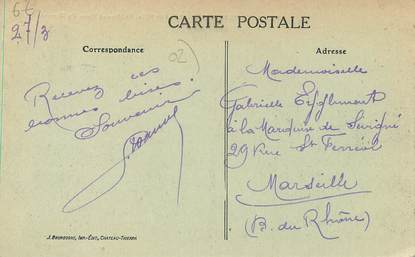 6€
27/3
CARTE POSTALE
Correspondance
02
Adresse
Recevez ces
bonnes bises.
Souvenir
Mademoiselle
Gabrielle
à la Marquise de Sévigné
29 Rue St Ferréol
Marseille
(B. du Rhône)
J. Bourgogne, Imp.-Édit., Chateau-Thierry